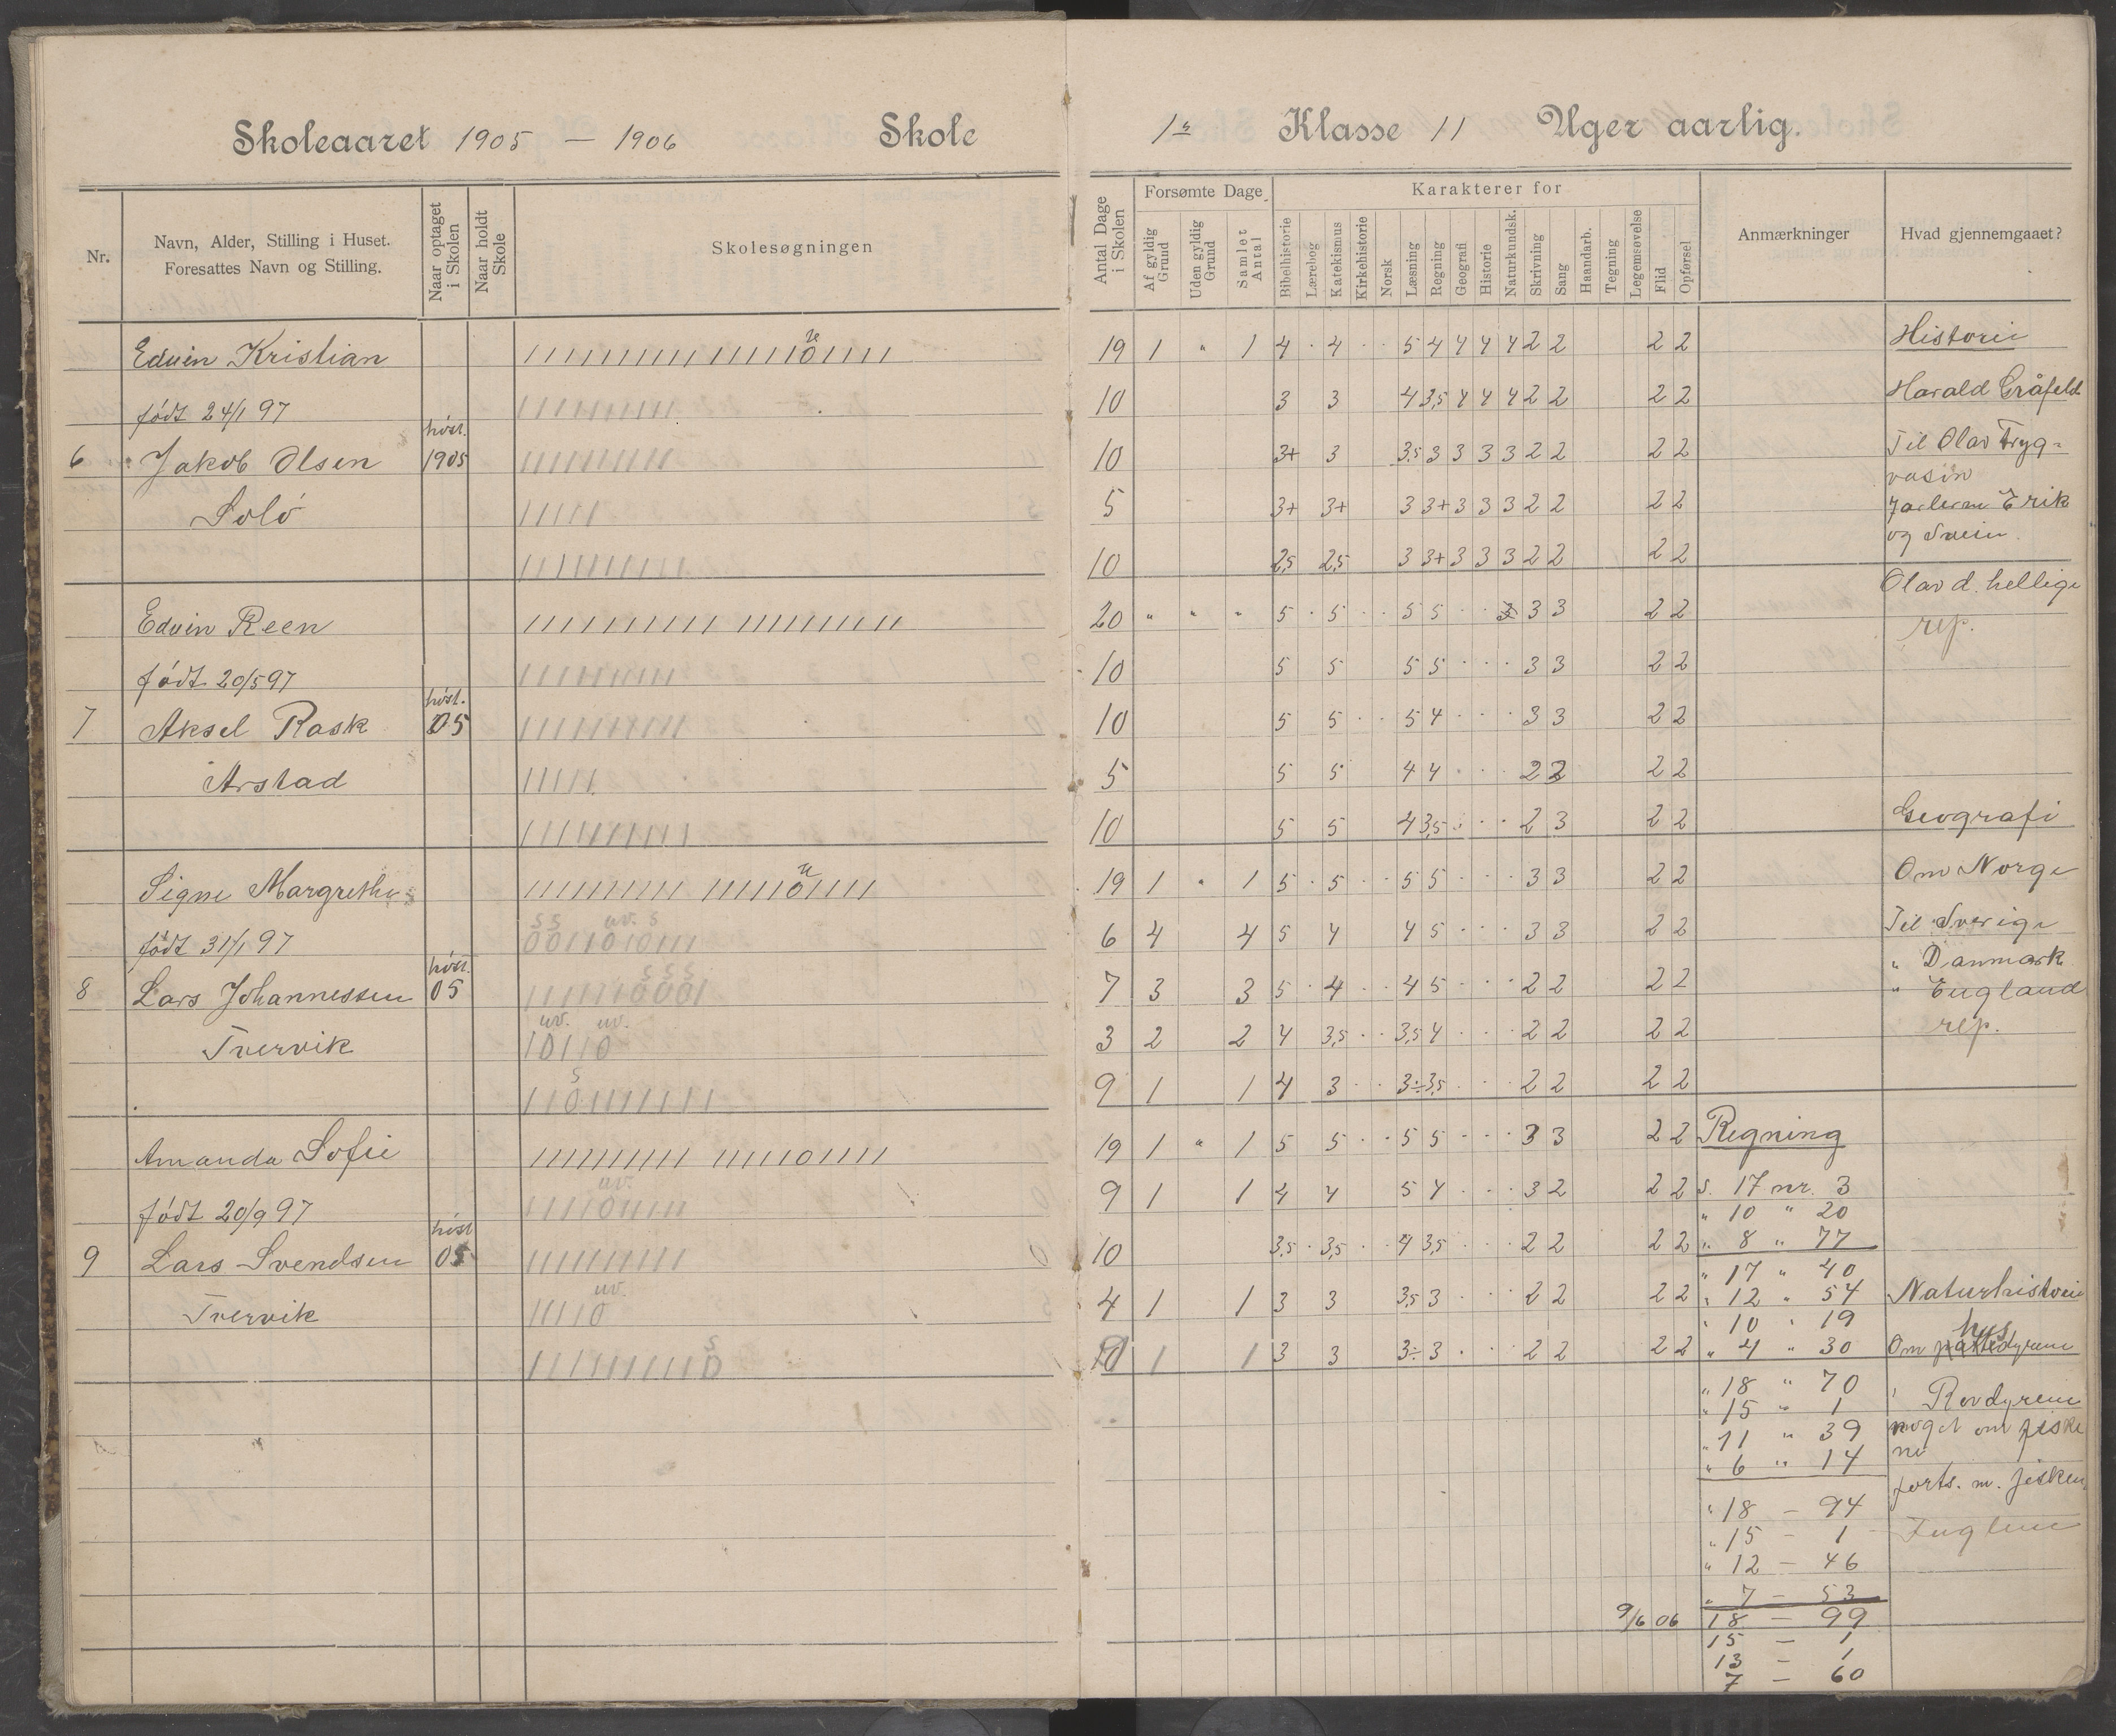 Skoleaaret 1905 — 1906 Skole
1ste Klasse 11 Uger aarlig.
Nr.
Navn, Alder, Stilling i Huset.
Foresattes Navn og Stilling.
Naar optaget i Skolen
Naar holdt Skole
Skolesøgningen
Antal Dage i Skolen
Forsømte Dage
Af gyldig Grund
Uden gyldig Grund
Samlet Antal
Karakterer for
Bibelhistorie
Lærebog
Katekismus
Kirkehistorie
Norsk
Læsning
Regning
Geografi
Historie
Naturkundsk.
Skrivning
Sang
Haandarb.
Tegning
Legemsøvelse
Flid
Opførsel
Anmærkninger
Hvad gjennemgaaet?
Edvin Kristian 19 1 " 1 4 · 4 · · 5 4 4 4 4 2 2 2 2
født 24/1 97 10 3 3 4 3,5 4 4 4 2 2 2 2
6 Jakob Olsen høst. 1905 10 3+ 3 3,5 3 3 3 3 2 2 2 2
Solö 5 3+ 3+ 3 3+ 3 3 3 2 2 2 2
10 2,5 2,5 3 3+ 3 3 3 2 2 2 2
Edvin Reen 20 " " " 5 · 5 · · 5 5 · · 3 3 2 2
født 20/5 97 10 5 5 5 5 · · · 3 3 2 2
7 Aksel Rask høst. 05 10 5 5 · · 5 4 · · · 3 3 2 2
Arstad 5 5 5 4 4 · · · 2 2 2 2
10 5 5 4 3,5 · · · 2 3 2 2
Signe Margrethe 19 1 " 1 5 · 5 · · 5 5 · · · 3 3 2 2
født 31/1 97 6 4 4 5 4 4 5 · · · 3 3 2 2
8 Lars Johannessen høst. 05 7 3 3 5 · 4 · · 4 5 · · · 2 2 2 2
Tvervik 3 2 2 4 3,5 · · 3,5 4 · · · 2 2 2 2
9 1 1 4 3 · · 3÷ 3,5 · · · 2 2 2 2
Amanda Sofie 19 1 " 1 5 5 · · 5 5 · · · 3 3 2 2
født 20/9 97 9 1 1 4 4 5 4 · · · 3 2 2 2
9 Lars Svendsen høst 05 10 3,5 · 3,5 · · 4 3,5 · · · 2 2 2 2
Tvervik 4 1 1 3 3 3,5 3 · · · 2 2 2 2
10 1 1 3 3 3÷ 3 · · · 2 2 2 2
Regning
S. 17 nr. 3
" 10 " 20
" 8 " 77
" 17 " 40
" 12 " 54
" 10 " 19
" 4 " 30
" 18 " 70
" 15 " 1
" 11 " 39
" 6 " 14
" 18 — 94
" 15 — 1
" 12 — 46
" 7 — 53
9/6 06 18 — 99
15 — 1
13 — 1
7 — 60
Historie
Harald Gråfeld
Til Olav Tryg=
vasøn
Jarlerne Erik
og Svein.
Olav d. hellige
rep.
Geografi
Om Norge
Til Sverige
" Danmark
" England
rep.
Naturhistorie
hus
Om pattedyrene
" Rovdyrene
noget om fiske
ne
forts. m. fisken
Fuglene